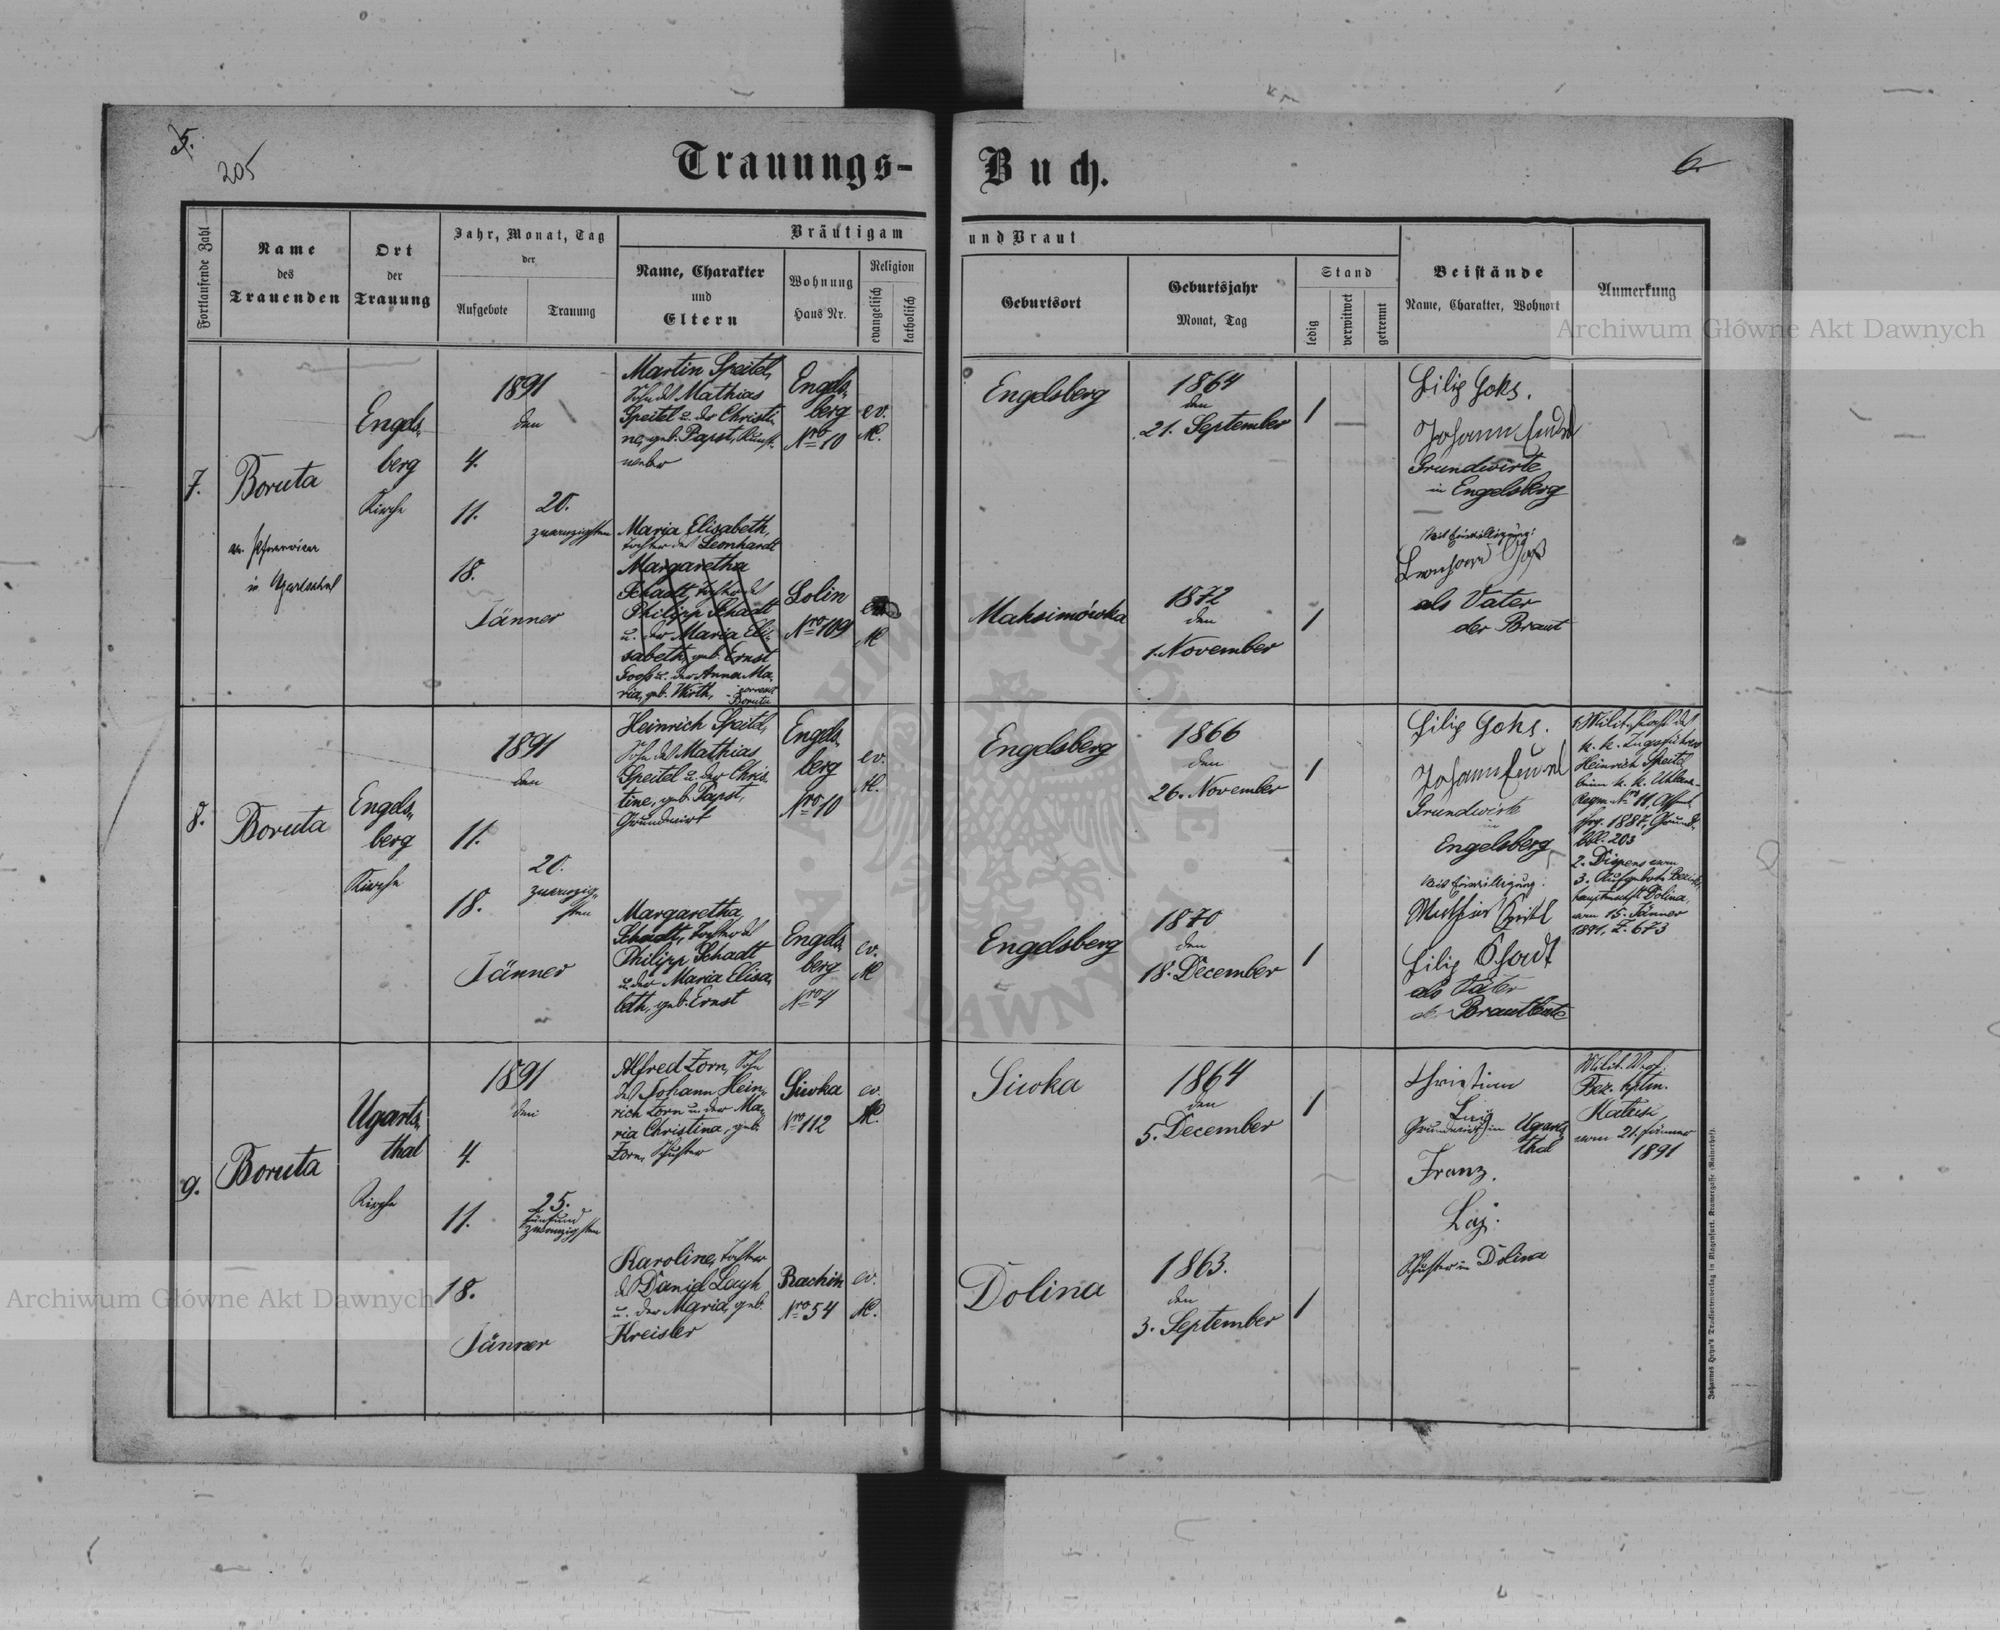 5.
205
Trauungs-
Buch.
6.
Fortlaufende Zahl
Name
des
Trauenden
Ort
der
Trauung
Jahr, Monat, Tag
der
Aufgebote
Trauung
Bräutigam
und Braut
Name, Charakter
und
Eltern
Wohnung
Haus Nr.
Religion
evangelisch
katholisch
Geburtsort
Geburtsjahr
Monat, Tag
Stand
ledig
verwitwet
getrennt
Beistände
Name, Charakter, Wohnort
Anmerkung
Archiwum Główne Akt Dawnych
7.
Boruta
ev. Pfarrvicar
in Ugartsthal
Engels-
berg
Kirche
1891
den
4.
11.
18.
Jänner
20.
zwanzigsten
Martin Speitel,
Sohn des Mathias
Speitel u. der Christi-
ne, geb. Papst,
Maria Elisabeth,
Tochter des Leonhardt
Margaretha
Schadt, Tochter des
Philipp Schadt
u. der Maria Eli-
sabeth, geb. Ernst
u. der Anna Ma-
ria, geb. Wirth,
correxit
Boruta
Engels-
berg
Nro 10
ev.
AC.
Solin
Nro 109
AC
Engelsberg
1864
den
21. September
1
Maksimówka
1872
den
1. November
1
Filip Goks.
Johann
Grundwirte
in Engelsberg
Mit Einwilligung:
als Vater
der Braut
8.
Boruta
Engels-
berg
Kirche
1891
den
11.
18.
Jänner
20.
zwanzig-
sten
Heinrich Speitel,
Sohn des Mathias
Speitel u. der Chris-
tine, geb. Papst,
Grundwirt
Margaretha
Schadt, Tochter des
Philipp Schadt
u. der Maria Elisa-
beth, geb. Ernst
Engels-
berg
Nro 10
ev.
AC.
Engels-
berg
Nro 4
ev.
AC
Engelsberg
1866
den
26. November
1
Engelsberg
1870
den
18. December
1
Filip Goks.
Johann
Grundwirte
in
Engelsberg
Mit Einwilligung:
Filip Schadt
als Väter
der Brautleute
k. k. Zugsführers
Heinrich Speitel
beim k. k. Uhlan-
Regm. Nro 11,
1887, Grund-
bbl. 203
2. Dispens vom
3. Aufgebote Bezirks-
hauptmschft Dolina,
vom 15. Jänner
1891, Z. 673
9.
Boruta
Ugarts-
thal
Kirche
1891
den
4.
11.
18.
Jänner
25.
fünfund
zwanzigsten
Alfred Zorn, Sohn
des Johann Hein-
rich Zorn u. der Ma-
ria Christina, geb.
Zorn, Schuster
Karoline, Tochter
des Daniel Layh
u. der Maria, geb.
Kreisler
Siwka
Nro 112
ev.
AC.
Rachin
Nro 54
ev.
AC.
Siwka
1864
den
5. December
1
Dolina
1863.
den
3. September
1
Christian
Grundwirth in Ugarts-
thal
Franz.
Schuster in Dolina
Bez. hptm.
Kalusz,
vom 21. Jänner
1891
Archiwum Główne Akt Dawnych
ARCHIWUM GŁÓWNE AKT DAWNYCH